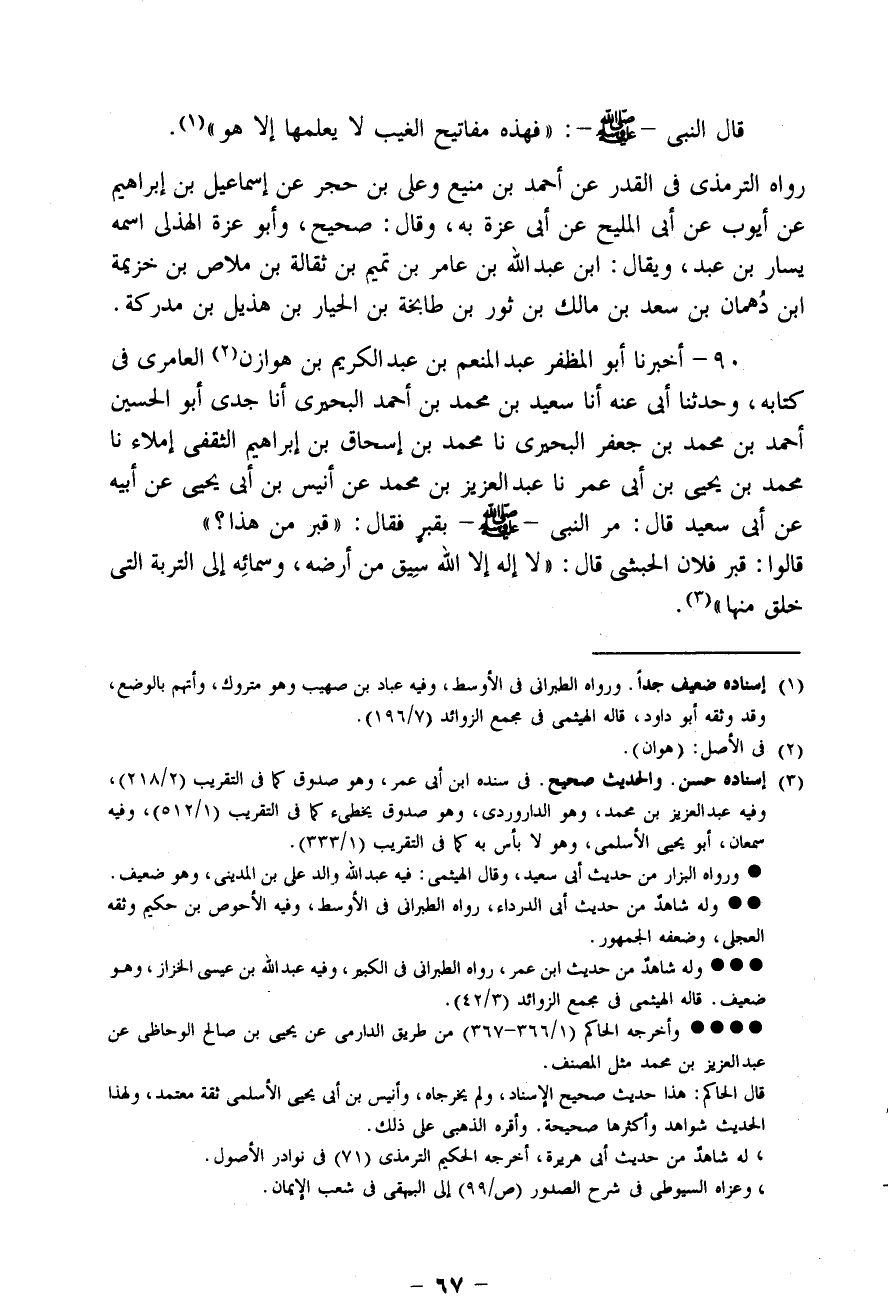 قال النبى -ﷺ-: «فهذه مفاتيح الغيب لا يعلمها إلا هو»(١).
رواه الترمذى فى القدر عن أحمد بن منيع وعلى بن حجر عن إسماعيل بن إبراهيم
عن أيوب عن أبى المليح عن أبى عزة به، وقال: صحيح، وأبو عزة الهذلى اسمه
يسار بن عبد، ويقال: ابن عبدالله بن عامر بن تميم بن ثقالة بن ملاص بن خزيمة
ابن دُهمان بن سعد بن مالك بن ثور بن طابخة بن الحيار بن هذيل بن مدركة.
٩٠- أخبرنا أبو المظفر عبدالمنعم بن عبدالكريم بن هوازن(٢) العامرى فى
كتابه، وحدثنا أبى عنه أنا سعيد بن محمد بن أحمد البحيرى أنا جدى أبو الحسين
أحمد بن محمد بن جعفر البحيرى نا محمد بن إسحاق بن إبراهيم الثقفى إملاء نا
محمد بن يحيى بن أبى عمر نا عبدالعزيز بن محمد عن أنيس بن أبى يحيى عن أبيه
عن أبى سعيد قال: مر النبى -ﷺ- بقبرٍ فقال: «قبر من هذا؟»
قالوا: قبر فلان الحبشى قال: «لا إله إلا الله سِيق من أرضه، وسمائِه إلى التربة التى
خلق منها»(٣).
(١) إسناده ضعيف جداً. ورواه الطبرانى فى الأوسط، وفيه عباد بن صهيب وهو متروك، وأتهم بالوضع،
وقد وثقه أبو داود، قاله الهيثمى فى مجمع الزوائد (١٩٦/٧).
(٢) فى الأصل: (هوان).
(٣) إسناده حسن. والحديث صحيح. فى سنده ابن أبى عمر، وهو صدوق كما فى التقريب (٢١٨/٢)،
وفيه عبدالعزيز بن محمد، وهو الداروردى، وهو صدوق يخطىء كما فى التقريب (٥١٢/١)، وفيه
سمعان، أبو يحيى الأسلمى، وهو لا بأس به كما فى التقريب (٣٣٣/١).
● ورواه البزار من حديث أبى سعيد، وقال الهيثمى: فيه عبدالله والد على بن المدينى، وهو ضعيف.
●● وله شاهدٌ من حديث أبى الدرداء، رواه الطبرانى فى الأوسط، وفيه الأحوص بن حكيم وثقه
العجلى، وضعفه الجمهور.
●●● وله شاهدٌ من حديث ابن عمر، رواه الطبرانى فى الكبير، وفيه عبدالله بن عيسى الخزاز، وهـو
ضعيف. قاله الهيثمى فى مجمع الزوائد (٤٢/٣).
●●●● وأخرجه الحاكم (٣٦٦/١-٣٦٧) من طريق الدارمى عن يحيى بن صالح الوحاظى عن
عبدالعزيز بن محمد مثل المصنف.
قال الحاكم: هذا حديث صحيح الإسناد، ولم يخرجاه، وأنيس بن أبى يحيى الأسلمى ثقة معتمد، ولهذا
الحديث شواهد وأكثرها صحيحة. وأقره الذهبى على ذلك.
، له شاهدٌ من حديث أبى هريرة، أخرجه الحكيم الترمذى (٧١) فى نوادر الأصول.
، وعزاه السيوطى فى شرح الصدور (ص/٩٩) إلى البيهقى فى شعب الإيمان.
- ٦٧ -